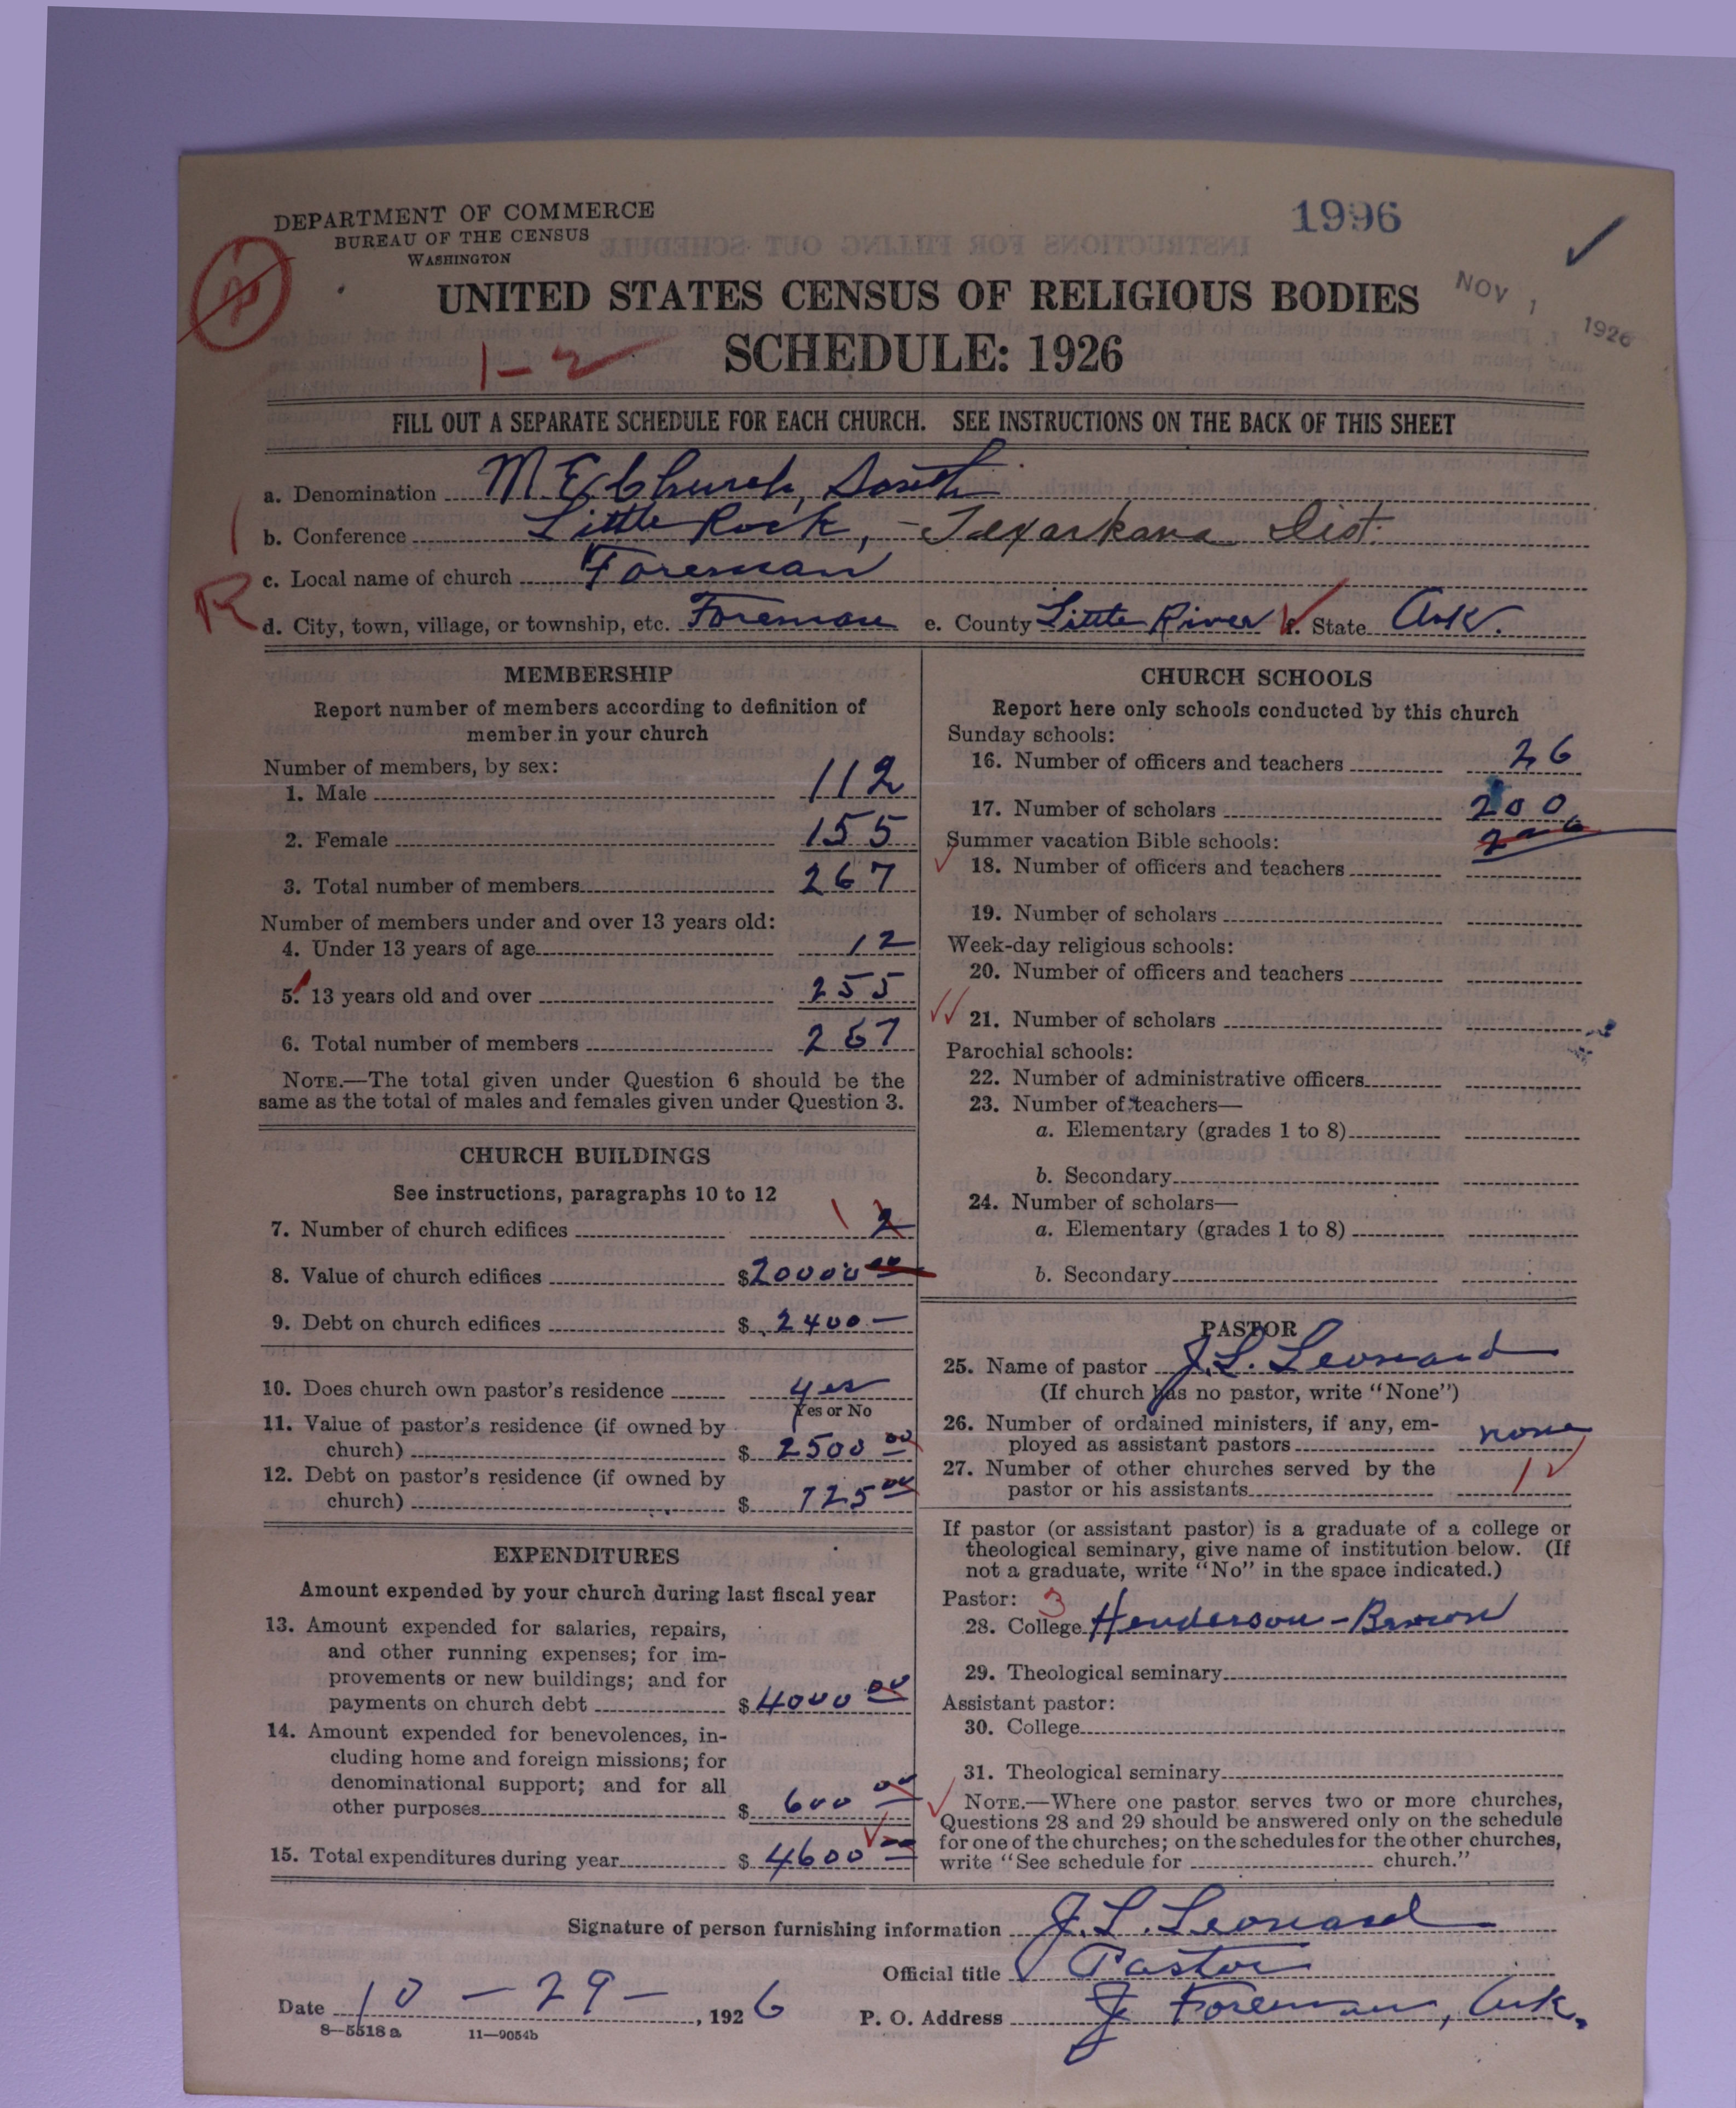 DEPARTMENT OF COMMERCE
BUREAU OF THE CENSUS
WASHINGTON
1996
NOV 1 1926
UNITED STATES CENSUS OF RELIGIOUS BODIES
1-2
SCHEDULE: 1926
FILL OUT A SEPARATE SCHEDULE FOR EACH CHURCH. SEE INSTRUCTIONS ON THE BACK OF THIS SHEET
a. Denomination M E Church, South
b. Conference Little Rock, - Texarkana Dist.
c. Local name of church Foreman
R
d. City, town, village, or township, etc. Foreman e. County Little River f. State Ark.
MEMBERSHIP
Report number of members according to definition of
member in your church
Number of members, by sex:
1. Male 112
2. Female 155
3. Total number of members 267
Number of members under and over 13 years old:
4. Under 13 years of age 12
5. 13 years old and over 255
6. Total number of members 267
NOTE.—The total given under Question 6 should be the
same as the total of males and females given under Question 3.
CHURCH BUILDINGS
See instructions, paragraphs 10 to 12
7. Number of church edifices 1 2
8. Value of church edifices $20000 00
9. Debt on church edifices $ 2400 —
10. Does church own pastor's residence yes
Yes or No
11. Value of pastor's residence (if owned by
church) $ 2500 00
12. Debt on pastor's residence (if owned by
church) $ 725 00
EXPENDITURES
Amount expended by your church during last fiscal year
13. Amount expended for salaries, repairs,
and other running expenses; for im-
provements or new buildings; and for
payments on church debt $4000 00
14. Amount expended for benevolences, in-
cluding home and foreign missions; for
denominational support; and for all
other purposes $ 600 00
15. Total expenditures during year $ 4600 00
CHURCH SCHOOLS
Report here only schools conducted by this church
Sunday schools:
16. Number of officers and teachers 26
17. Number of scholars 200
Summer vacation Bible schools: 200
18. Number of officers and teachers
19. Number of scholars
Week-day religious schools:
20. Number of officers and teachers
21. Number of scholars
Parochial schools:
22. Number of administrative officers
23. Number of teachers—
a. Elementary (grades 1 to 8)
b. Secondary
24. Number of scholars—
a. Elementary (grades 1 to 8)
b. Secondary
PASTOR
25. Name of pastor J. L. Leonard
(If church has no pastor, write "None")
26. Number of ordained ministers, if any, em-
ployed as assistant pastors none
27. Number of other churches served by the
pastor or his assistants 1
If pastor (or assistant pastor) is a graduate of a college or
theological seminary, give name of institution below. (If
not a graduate, write "No" in the space indicated.)
Pastor: 3
28. College Henderson-Brown
29. Theological seminary
Assistant pastor:
30. College
31. Theological seminary
NOTE.—Where one pastor serves two or more churches,
Questions 28 and 29 should be answered only on the schedule
for one of the churches; on the schedules for the other churches,
write "See schedule for church."
Signature of person furnishing information J. L. Leonard
Official title Pastor
Date 10 - 29 -, 1926 P. O. Address Foreman, Ark.
8—5518 a 11—9054b